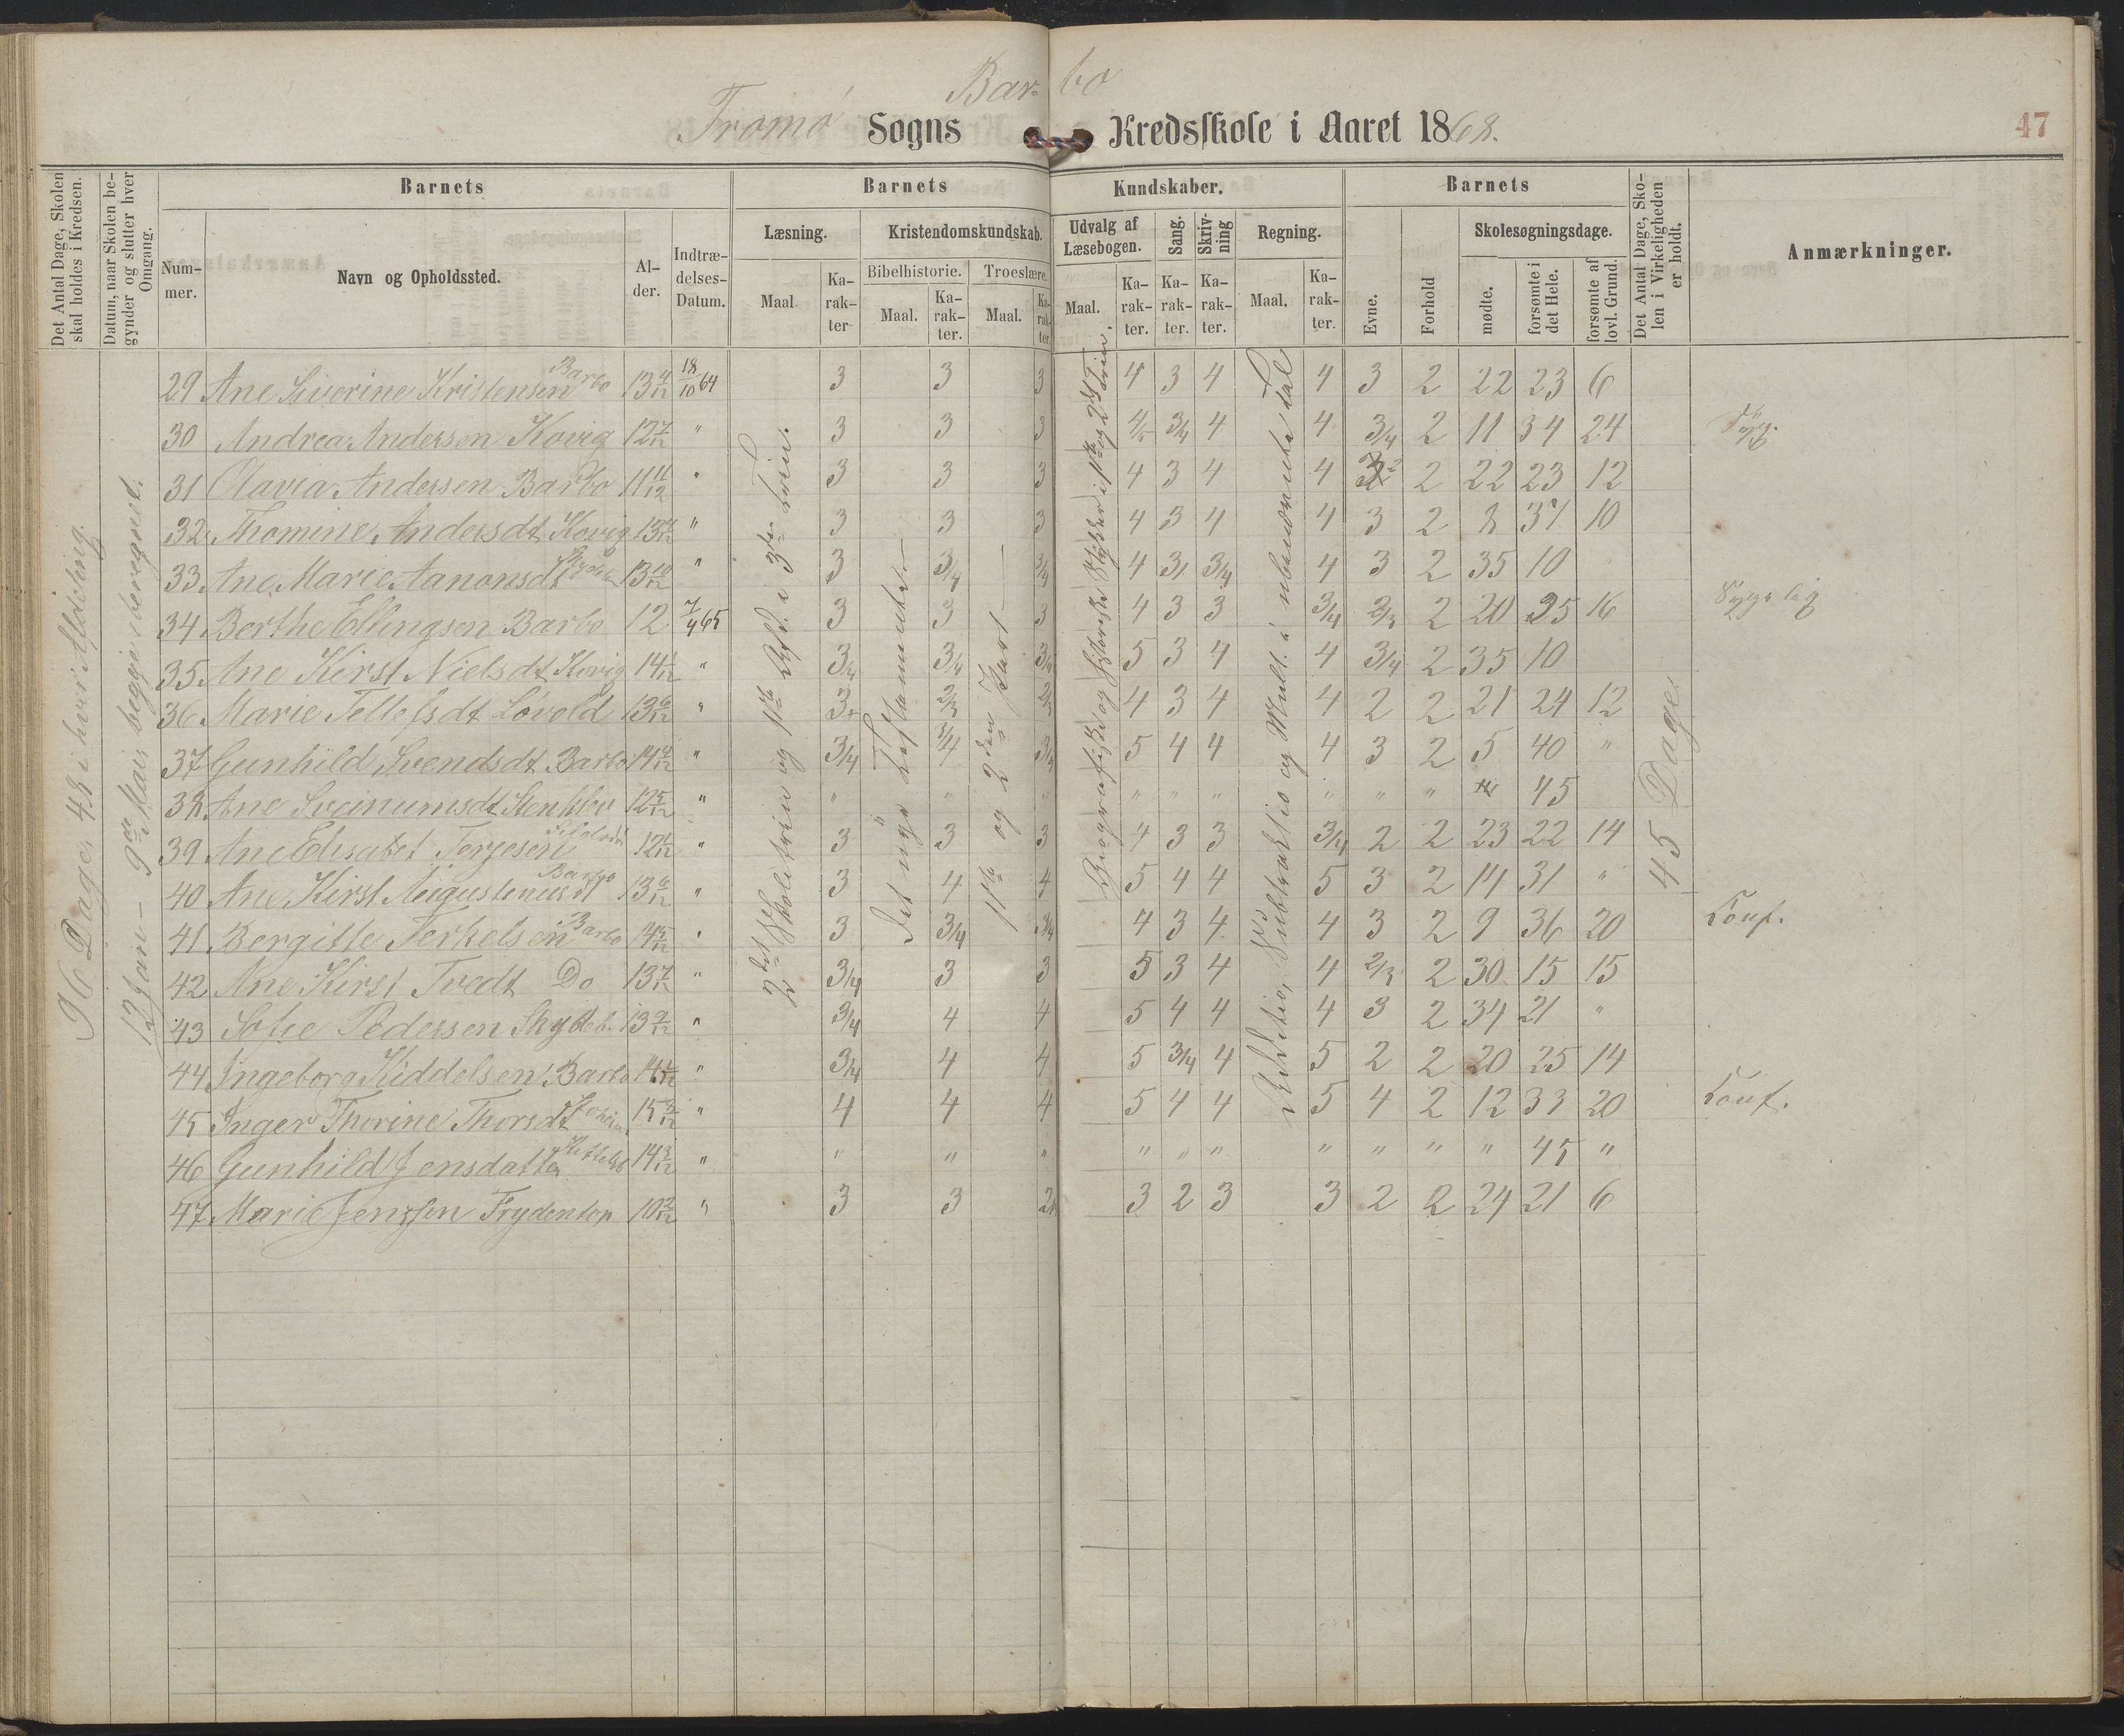 Bar- bo
Tromø Sogns Kredsskole i Aaret 1868.
47
Det Antal Dage, Skolen skal holdes i Kredsen.
Datum, naar Skolen begynder og slutter hver Omgang.
Barnets
Barnets
Kundskaber.
Barnets
Det Antal Dage, Skolen i Virkeligheden er holdt.
Anmærkninger.
Nummer.
Navn og Opholdssted.
Alder.
Indtrædelses-Datum.
Læsning.
Kristendomskundskab.
Udvalg af Læsebogen.
Sang.
Skrivning
Regning.
Evne.
Forhold
Skolesøgningsdage.
Bibelhistorie.
Troeslære.
Maal.
Karakter
Maal.
Karakter.
Maal.
Karakter.
Maal.
Karakter.
Karakter.
Karakter.
Maal.
Karakter.
mødte.
forsømte i det Hele.
forsømte af lovl. Grund.
96 Dage, 48 i hver Afdeling.
12 Jan - 9de Mais begge iberegnet.
2det Skoletrin og 1ste Afd. i 3die Trin.
Det nye Testamente
1ste og 2den Part
Biografiske og historiske Stykker i 1ste og 2det Trin.
Addition, Subtraktion og Mult. i ubenævnte Tal
45 Dage
29 Ane Siverine Kristensen Barbo 13 4/12 18/10 64 3 3 3 4 3 4 4 3 2 22 23 6
30 Andrea Andersen Kovig 12 7/12 " 3 3 3 4/5 3/4 4 4 3/4 2 11 34 24 Syg.
31 Olavia Andersen Barbo 11 11/12 " 3 3 3 4 3 4 4 2 22 23 12
32 Thomine Andersdt Kovig 13 " 3 3 3 4 3 4 4 3 2 8 37 10
33 Ane Marie Aanonsdt 13 10/12 " 3 3/4 3/4 4 3/4 4 3 2 35 10
34 Berthe Ellingsen Barbo 12 7/4 65 3 3 3 4 3 3 3/4 2/3 2 20 25 16 Sygelig
35 Ane Kirst Nielsdt Kovig 14 1/12 " 3/4 3/4 3/4 5 3 4 4 3/4 2 35 10
36 Marie Tellefsdt Lovold 13 6/12 " 3 2/3 2/3 4 3 4 4 2 2 21 24 12
37 Gunhild Svendsdt Barbo 14 4/12 " 3/4 3/4 3/4 5 4 4 4 3 2 5 40 "
38 Ane 12 5/12 " " " " " " " " " " 45
39 Ane Elisabet Terjesen 12 " 3 3 3 4 3 3 3/4 2 2 23 22 14
40 Ane Kirst Augustinusdt Barbo 13 6/12 " 3 4 4 5 4 4 5 3 2 14 31 "
41 Bergitte Terkelsen Barbo 14 5/12 " 3 3/4 3/4 4 3 4 4 3 2 9 36 20 Conf.
42 Ane Kirst Tvedt Do 13 7/12 " 3/4 3 3 5 3 4 4 2/3 2 30 15 15
43 Sofie Pedersen Skytteb. 13 9/12 " 3/4 4 4 5 4 4 4 3 2 34 21 "
44 Ingeborg Kiddelsen Barbo 14 " 3/4 4 4 5 3/4 4 5 2 2 20 25 14
45 Inger Thorine Thorsdt 15 " 4 4 4 5 4 4 5 4 2 12 33 20 Conf.
46 Gunhild Jensdatter 14 3/12 " " " " " " " " " " " 45 "
47 Marie Jenssen Frydentop 10 2/12 " 3 3 2 3 2 3 3 2 2 24 21 6